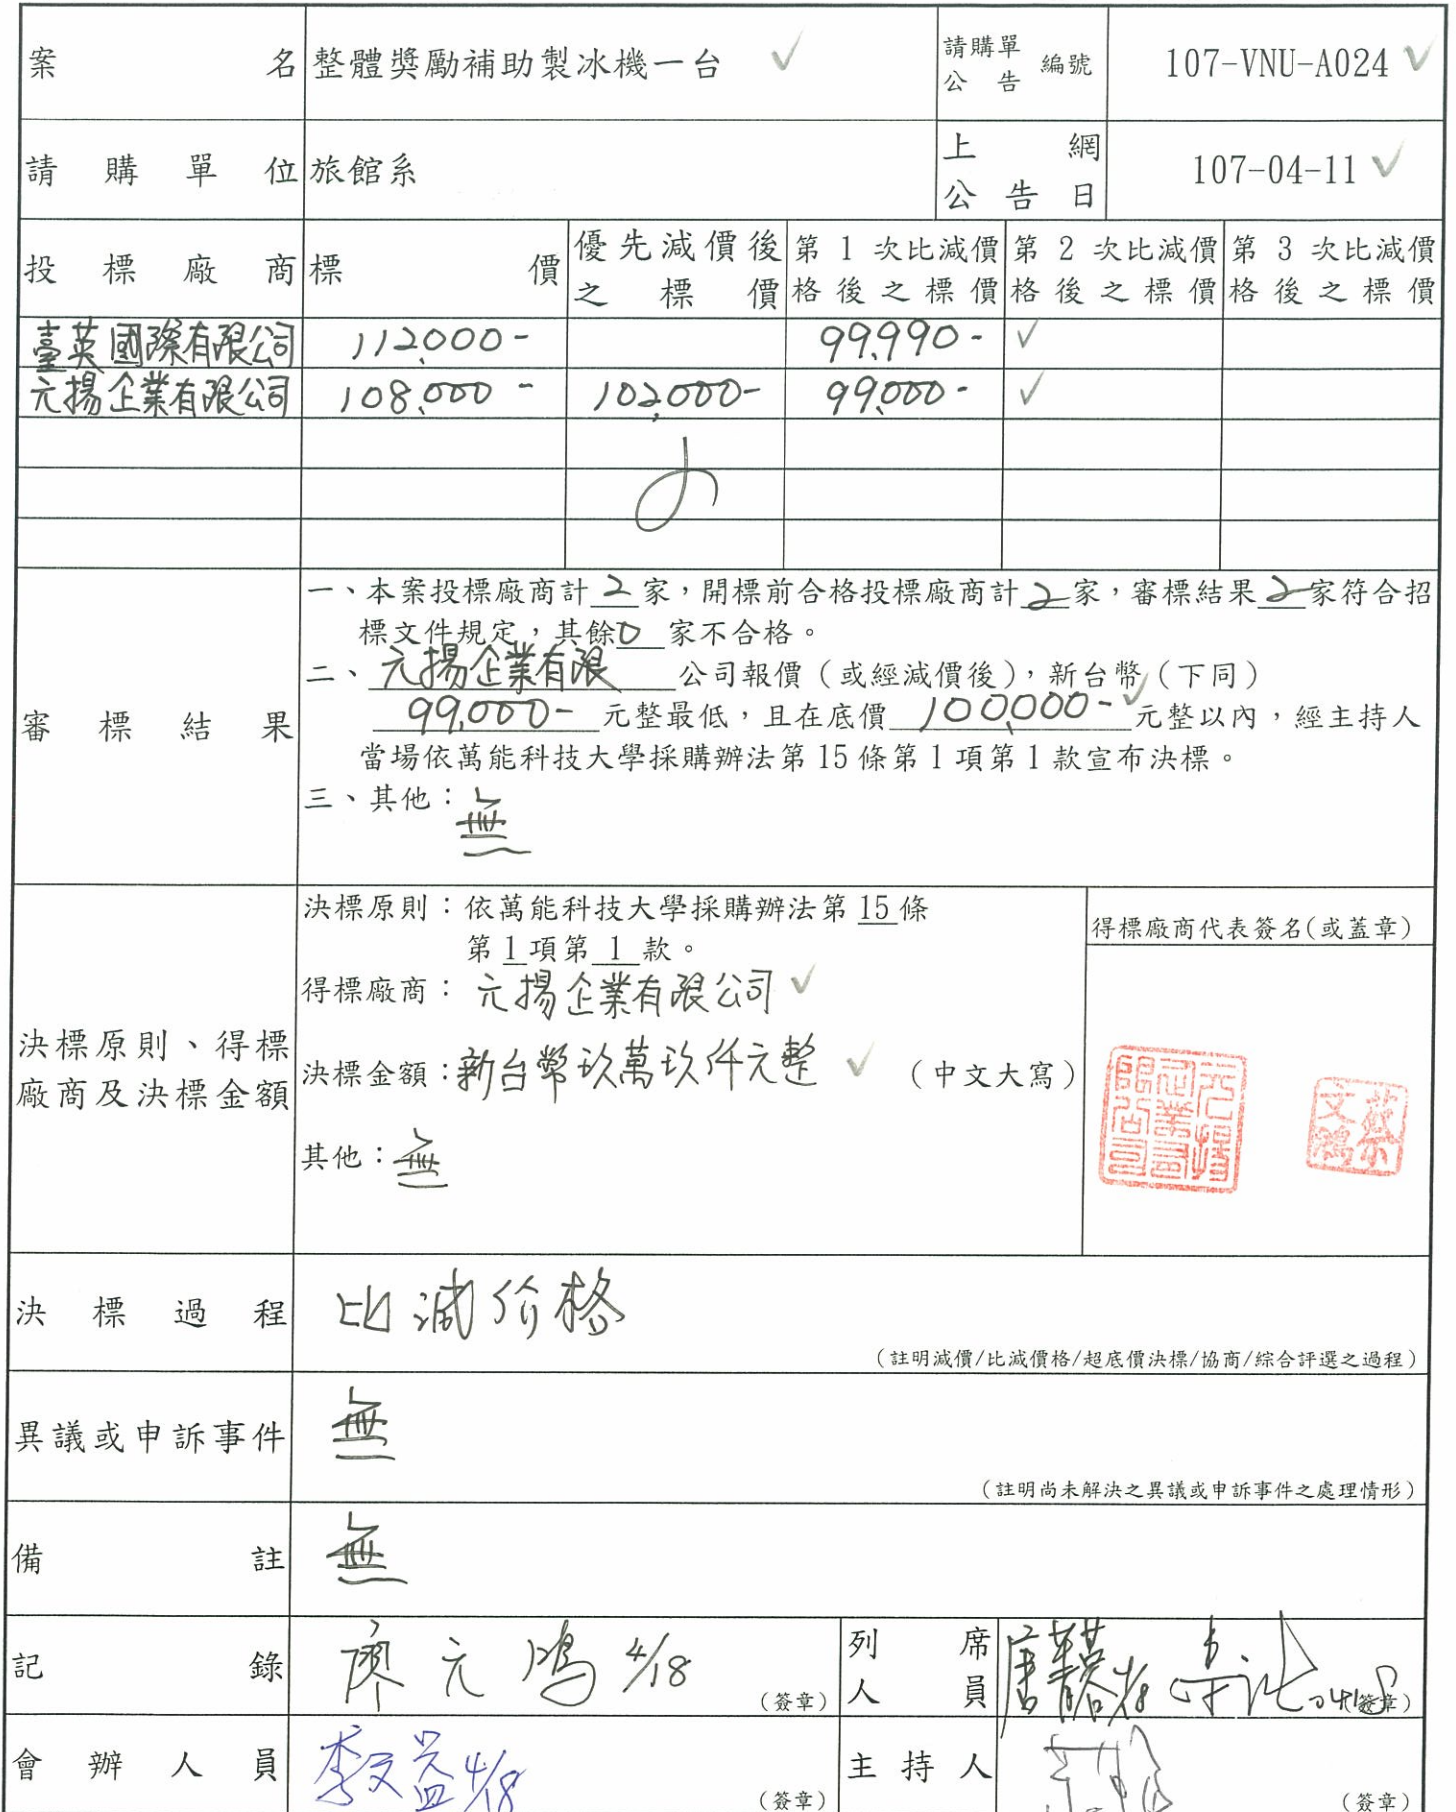 案名 整體獎勵補助製冰機一台 請購單公告編號 107-VNU-A024
請購單位 旅館系 上網公告日 107-04-11
投標廠商 標價 優先減價後之標價 第1次比減價格後之標價 第2次比減價格後之標價 第3次比減價格後之標價
臺英國際有限公司 112,000- 99,990-
元揚企業有限公司 108,000- 102,000- 99,000-
審標結果
一、本案投標廠商計2家,開標前合格投標廠商計2家,審標結果2家符合招
標文件規定,其餘0家不合格。
二、元揚企業有限公司報價(或經減價後),新台幣(下同)
99,000-元整最低,且在底價100,000-元整以內,經主持人
當場依萬能科技大學採購辦法第15條第1項第1款宣布決標。
三、其他:無
決標原則、得標
廠商及決標金額
決標原則:依萬能科技大學採購辦法第15條
第1項第1款。
得標廠商:元揚企業有限公司
決標金額:新台幣玖萬玖仟元整 (中文大寫)
其他:無
得標廠商代表簽名(或蓋章)
元揚企業有限公司
決標過程 比減价格
(註明減價/比減價格/超底價決標/協商/綜合評選之過程)
異議或申訴事件 無
(註明尚未解決之異議或申訴事件之處理情形)
備註 無
記錄 廖元鴻 4/18 (簽章) 列席人員 (簽章)
會辦人員 李文益 4/18 (簽章) 主持人 (簽章)